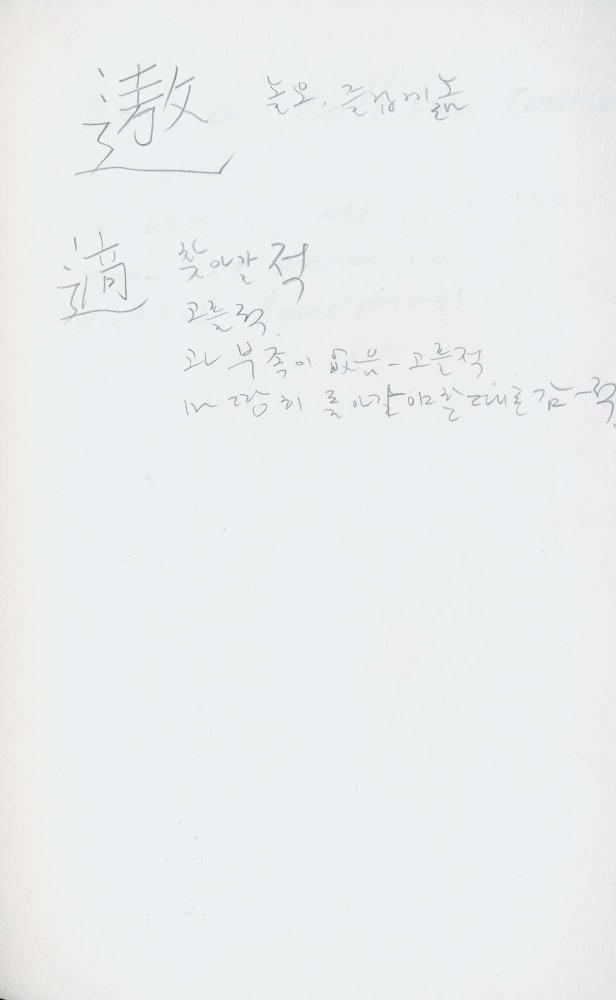 遨 놀 오. 즐겁게 놂
適 찾아갈 적
고를 적.
과부족이 없음 - 고를 적
마땅히 돌아가야 할 대로 감 - 적.